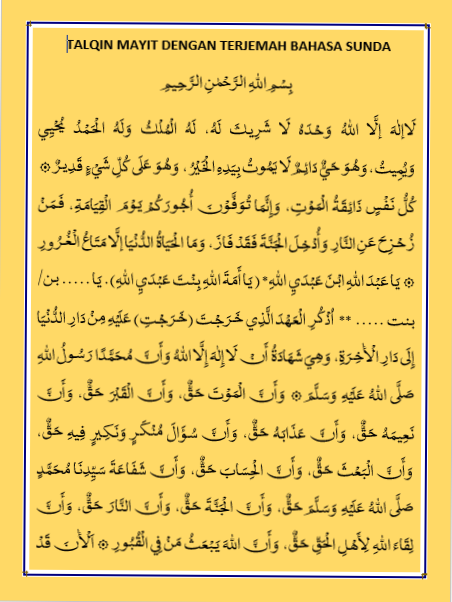 TALQIN MAYIT DENGAN TERJEMAH BAHASA SUNDA
بِسْمِ اللهِ الرَّحْمٰنِ الرَّحِيمِ
لَاإِلٰهَ إِلَّا اللهُ وَحْدَهُ لَا شَرِيكَ لَهُ، لَهُ الْمُلْكُ وَلَهُ الْحَمْدُ يُحْيِي
وَيُمِيتُ، وَهُوَ حَيٌّ دَائِمٌ لَا يَمُوتُ بِيَدِهِ الْخَيْرُ، وَهُوَ عَلَى كُلِّ شَيْءٍ قَدِيرٌ ۞
كُلُّ نَفْسٍ ذَائِقَةُ الْمَوْتِ، وَإِنَّمَا تُوَفَّوْنَ أُجُورَكُمْ يَوْمَ الْقِيَامَةِ، فَمَنْ
زُحْزِحَ عَنِ النَّارِ وَأُدْخِلَ الْجَنَّةَ فَقَدْ فَازَ، وَمَا الْحَيَاةُ الدُّنْيَا إِلَّا مَتَاعُ الْغُرُورِ
۞ يَا عَبْدَ اللهِ ابْنَ عَبْدَيِ اللهِ* (يَا أَمَةَ اللهِ بِنْتَ عَبْدَيِ اللهِ)، يَا ..... بن/
بنت ..... ** اُذْكُرِ الْعَهْدَ الَّذِي خَرَجْتَ (خَرَجْتِ) عَلَيْهِ مِنْ دَارِ الدُّنْيَا
إِلَى دَارِ الْآخِرَةِ، وَهِيَ شَهَادَةُ أَنْ لَا إِلٰهَ إِلَّا اللهُ وَأَنَّ مُحَمَّدًا رَسُولُ اللهِ
صَلَّى اللهُ عَلَيْهِ وَسَلَّمَ ۞ وَأَنَّ الْمَوْتَ حَقٌّ، وَأَنَّ الْقَبْرَ حَقٌّ، وَأَنَّ
نَعِيمَهُ حَقٌّ، وَأَنَّ عَذَابَهُ حَقٌّ، وَأَنَّ سُؤَالَ مُنْكَرٍ وَنَكِيرٍ فِيهِ حَقٌّ،
وَأَنَّ الْبَعْثَ حَقٌّ، وَأَنَّ الْحِسَابَ حَقٌّ، وَأَنَّ شَفَاعَةَ سَيِّدِنَا مُحَمَّدٍ
صَلَّى اللهُ عَلَيْهِ وَسَلَّمَ حَقٌّ، وَأَنَّ الْجَنَّةَ حَقٌّ، وَأَنَّ النَّارَ حَقٌّ، وَأَنَّ
لِقَاءَ اللهِ لِأَهْلِ الْحَقِّ حَقٌّ، وَأَنَّ اللهَ يَبْعَثُ مَنْ فِي الْقُبُورِ ۞ اَلْآنَ قَدْ